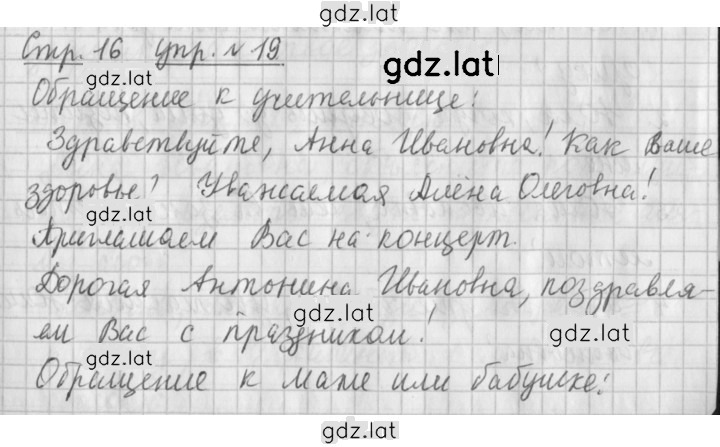 gdz.lat
Стр. 16 упр. № 19
gdz.lat
gdz.lat
Обращение к учительнице:
Здравствуйте, Анна Ивановна! Как Ваше
здоровье? Уважаемая Алёна Олеговна!
gdz.lat
Приглашаем Вас на концерт.
Дорогая Антонина Ивановна, поздравля-
gdz.lat
ем Вас с праздником!
gdz.lat
gdz.lat
Обращение к маме или бабушке:
gdz.lat